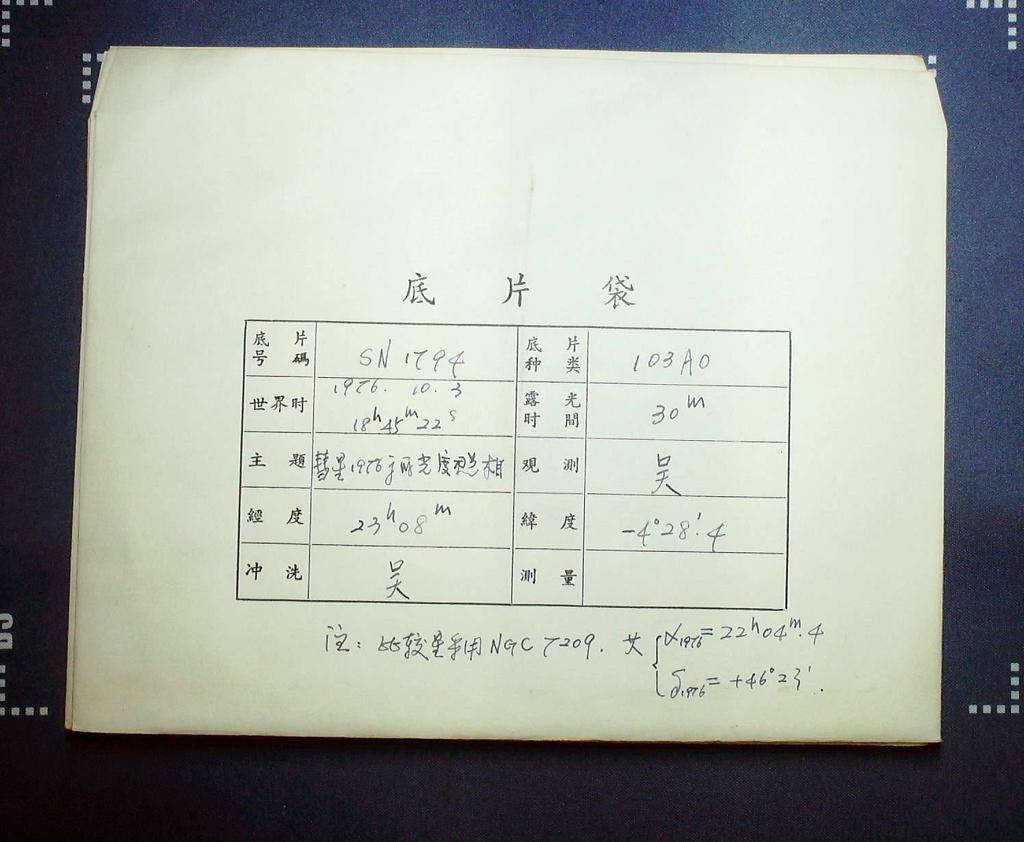 底片袋
底片号碼 SN 1794 底片种类 103AO
世界时 1976. 10. 3 18h45m22s 露光时間 30m
主題 彗星1976 光度照相 观測 吴
經度 23h08m 緯度 -4°28'.4
冲洗 吴 測量
注：比较星利用NGC 7209. 其 { α1976=22h04m.4
δ1976= +46°23'.